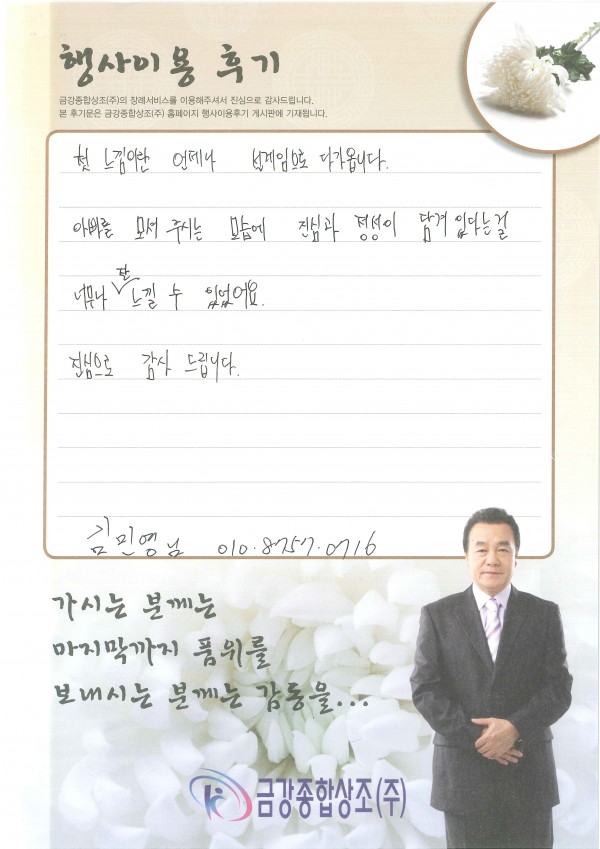 행사이용 후기
금강종합상조(주)의 장례서비스를 이용해주셔서 진심으로 감사드립니다.
본 후기문은 금강종합상조(주) 홈페이지 행사이용후기 게시판에 기재됩니다.
첫 느낌이란 언제나 설레임으로 다가옵니다.
아빠를 모셔 주시는 모습에 진심과 정성이 담겨 있다는걸
너무나 잘 느낄 수 있었어요.
진심으로 감사 드립니다.
김민영님 010.8757.0716
가시는 분께는
마지막까지 품위를
보내시는 분께는 감동을...
금강종합상조(주)